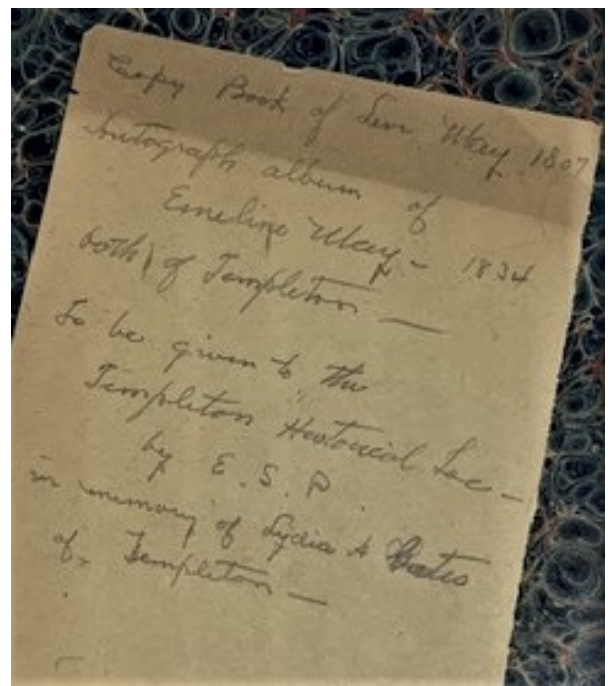 Copy Book of Levi May 1807
Autograph album of
Emeline May - 1834
both of Templeton —
To be given to the
Templeton Historical Soc -
by E. S. P.
in memory of Lydia A Bates
of Templeton —